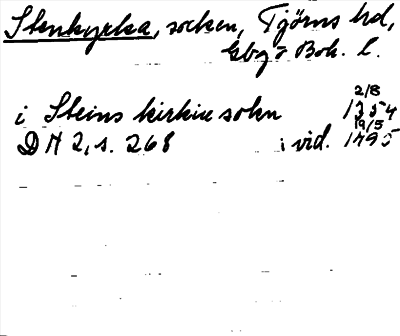 Stenkyrka, socken, Tjörns hd,
Gbg o Boh. l.
i Steins kirkiu sokn 2/8 1354
DN 2, s. 268 i vid. 19/5 1495